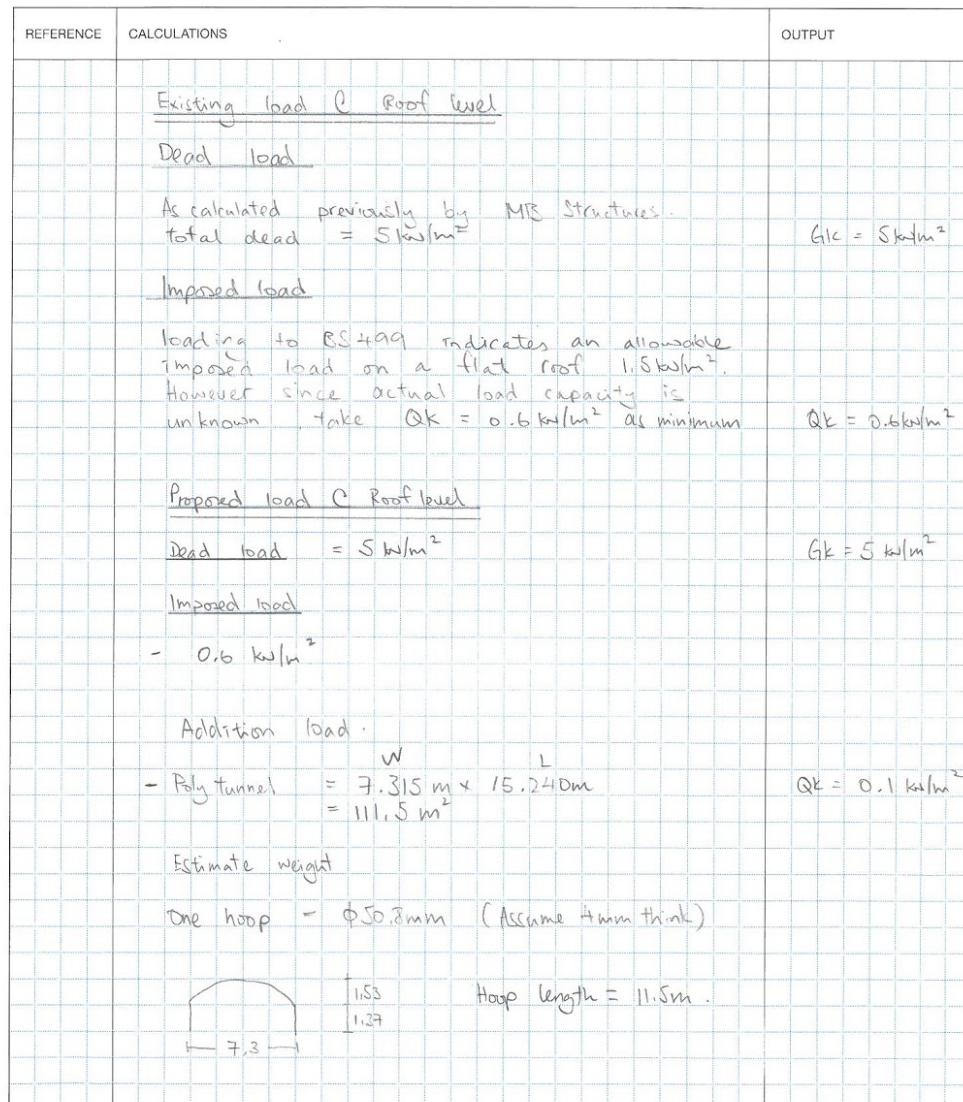 REFERENCE
CALCULATIONS
OUTPUT
Existing load @ Roof level
Dead load
As calculated previously by MB Structures.
total dead = 5kN/m²
Gk = 5kN/m²
Imposed load
loading to BS499 indicates an allowable
imposed load on a flat roof 1.5kN/m².
However since actual load capacity is
unknown, take Qk = 0.6 kN/m² as minimum
Qk = 0.6kN/m²
Proposed load @ Roof level
Dead load = 5 kN/m²
Gk = 5 kN/m²
Imposed load
- 0.6 kN/m²
Addition load.
W L
- Poly tunnel = 7.315 m × 15.240m
Qk = 0.1 kN/m²
= 111.5 m²
Estimate weight
One hoop - φ50.8mm (Assume 4mm think)
1.53
Hoop length = 11.5m.
1.37
7.3